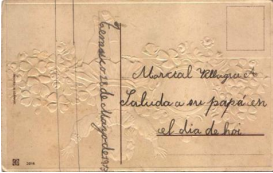 Marcial Villagra et
Saluda a su papá en
el dia de hoi
de Mayo de